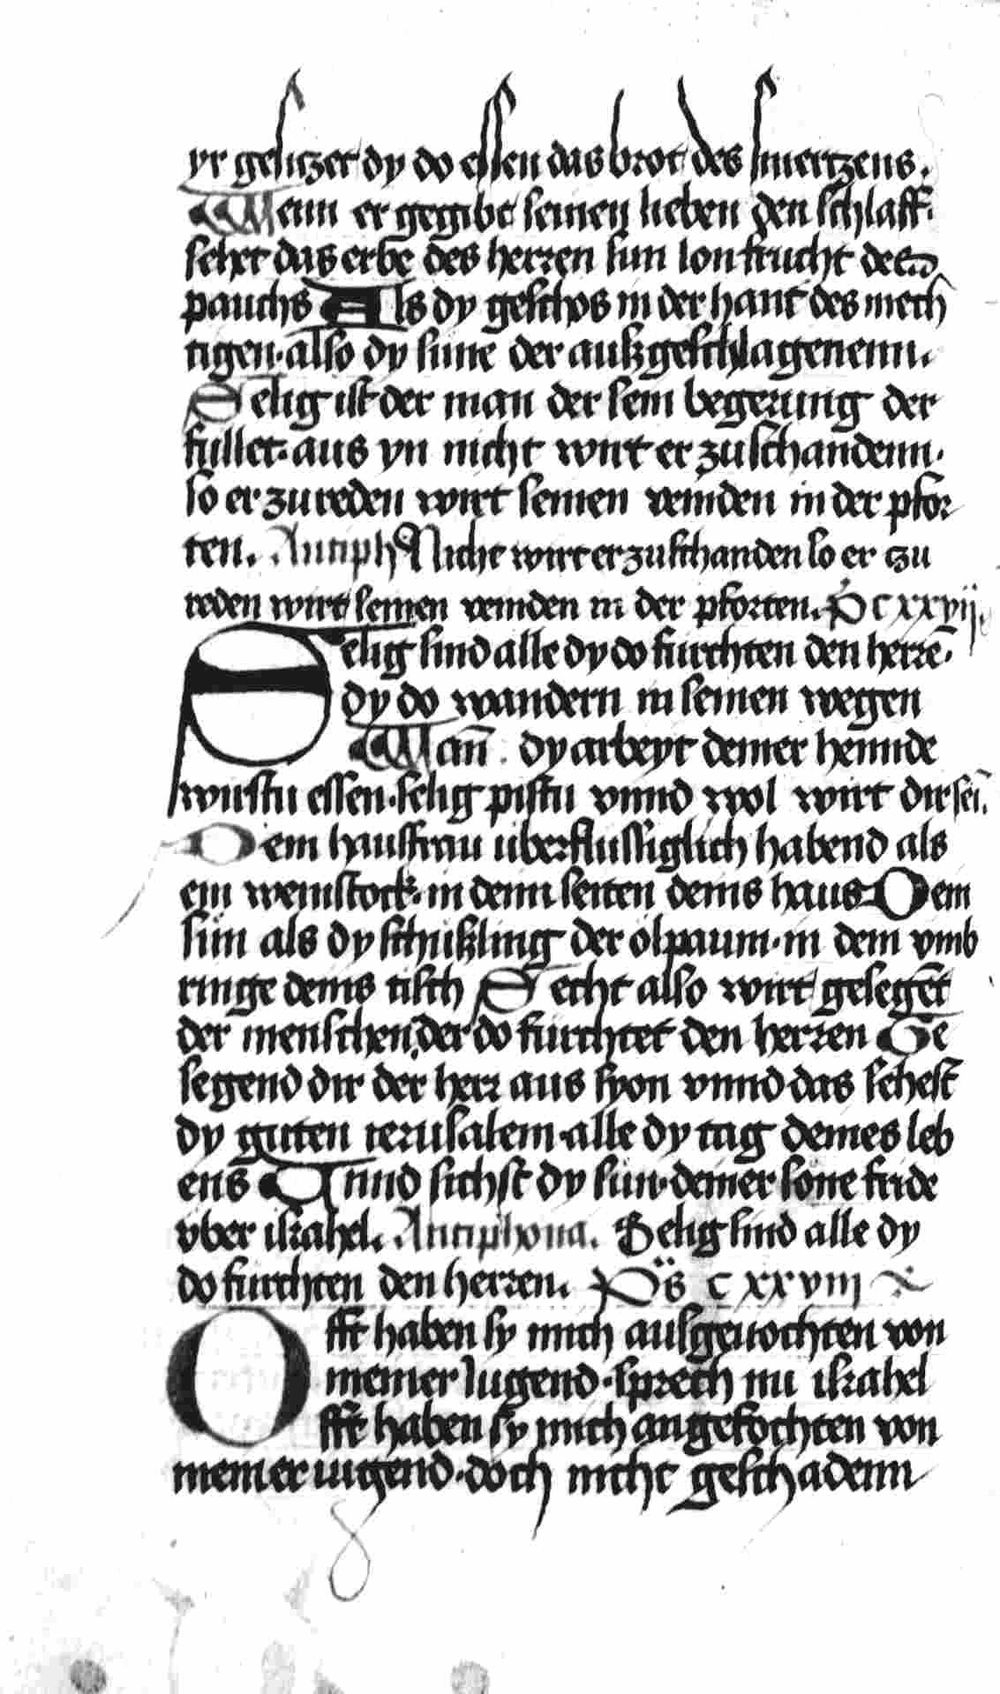 yr gesitzet dy do essen das brot des smertzens.
Wenn er gegibt seinen lieben den schlaff.
sehet das erbe des herren sun lon frucht des
pauchs Als dy geschos in der hant des mech
tigen. also dy sune der aufzgeschlagenenn.
Selig ist der man der sein begerung der
fullet. aus yn nicht wirt er zuschandenn.
so er zu reden wirt seinen veinden in der pfor
ten. Antiph Nicht wirt er zuschanden so er czu
reden wirt seinen veinden in der pforten. Ps cxxvij
Selig sind alle dy do furchten den herrē.
dy do wandern in seinen wegen
Wañ dy arbeyt deiner hennde
wirstu essen. selig pistu vnnd wol wirt dir seī.
Dein hausfrau uberflussiglich habend als
ein weinstock. in denn seiten deins haus Dein
sun als dy schuszling der ölpaum. in dem vmb
ringe deins tisch Secht also wirt gesegēt
der menschen, der do furchtet den herren Ge
segend dir der herr aus syon vnnd das sehest
dy guten ierusalem. alle dy tag deines leb
ens Vnnd sichst dy sun. deiner söne fride
vber israhel. Antiphona. Selig sind alle dy
do furchten den herren. Ps cxxviii
Offt haben sy mich ausgeuochten von
meiner Jugend. sprech nu israhel
Offt haben sy mich angefochten von
meiner iugend. doch nicht geschadenn